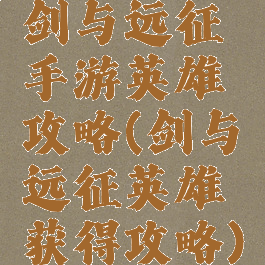 剑与远征
手游英雄
攻略(剑与
远征英雄
获得攻略)